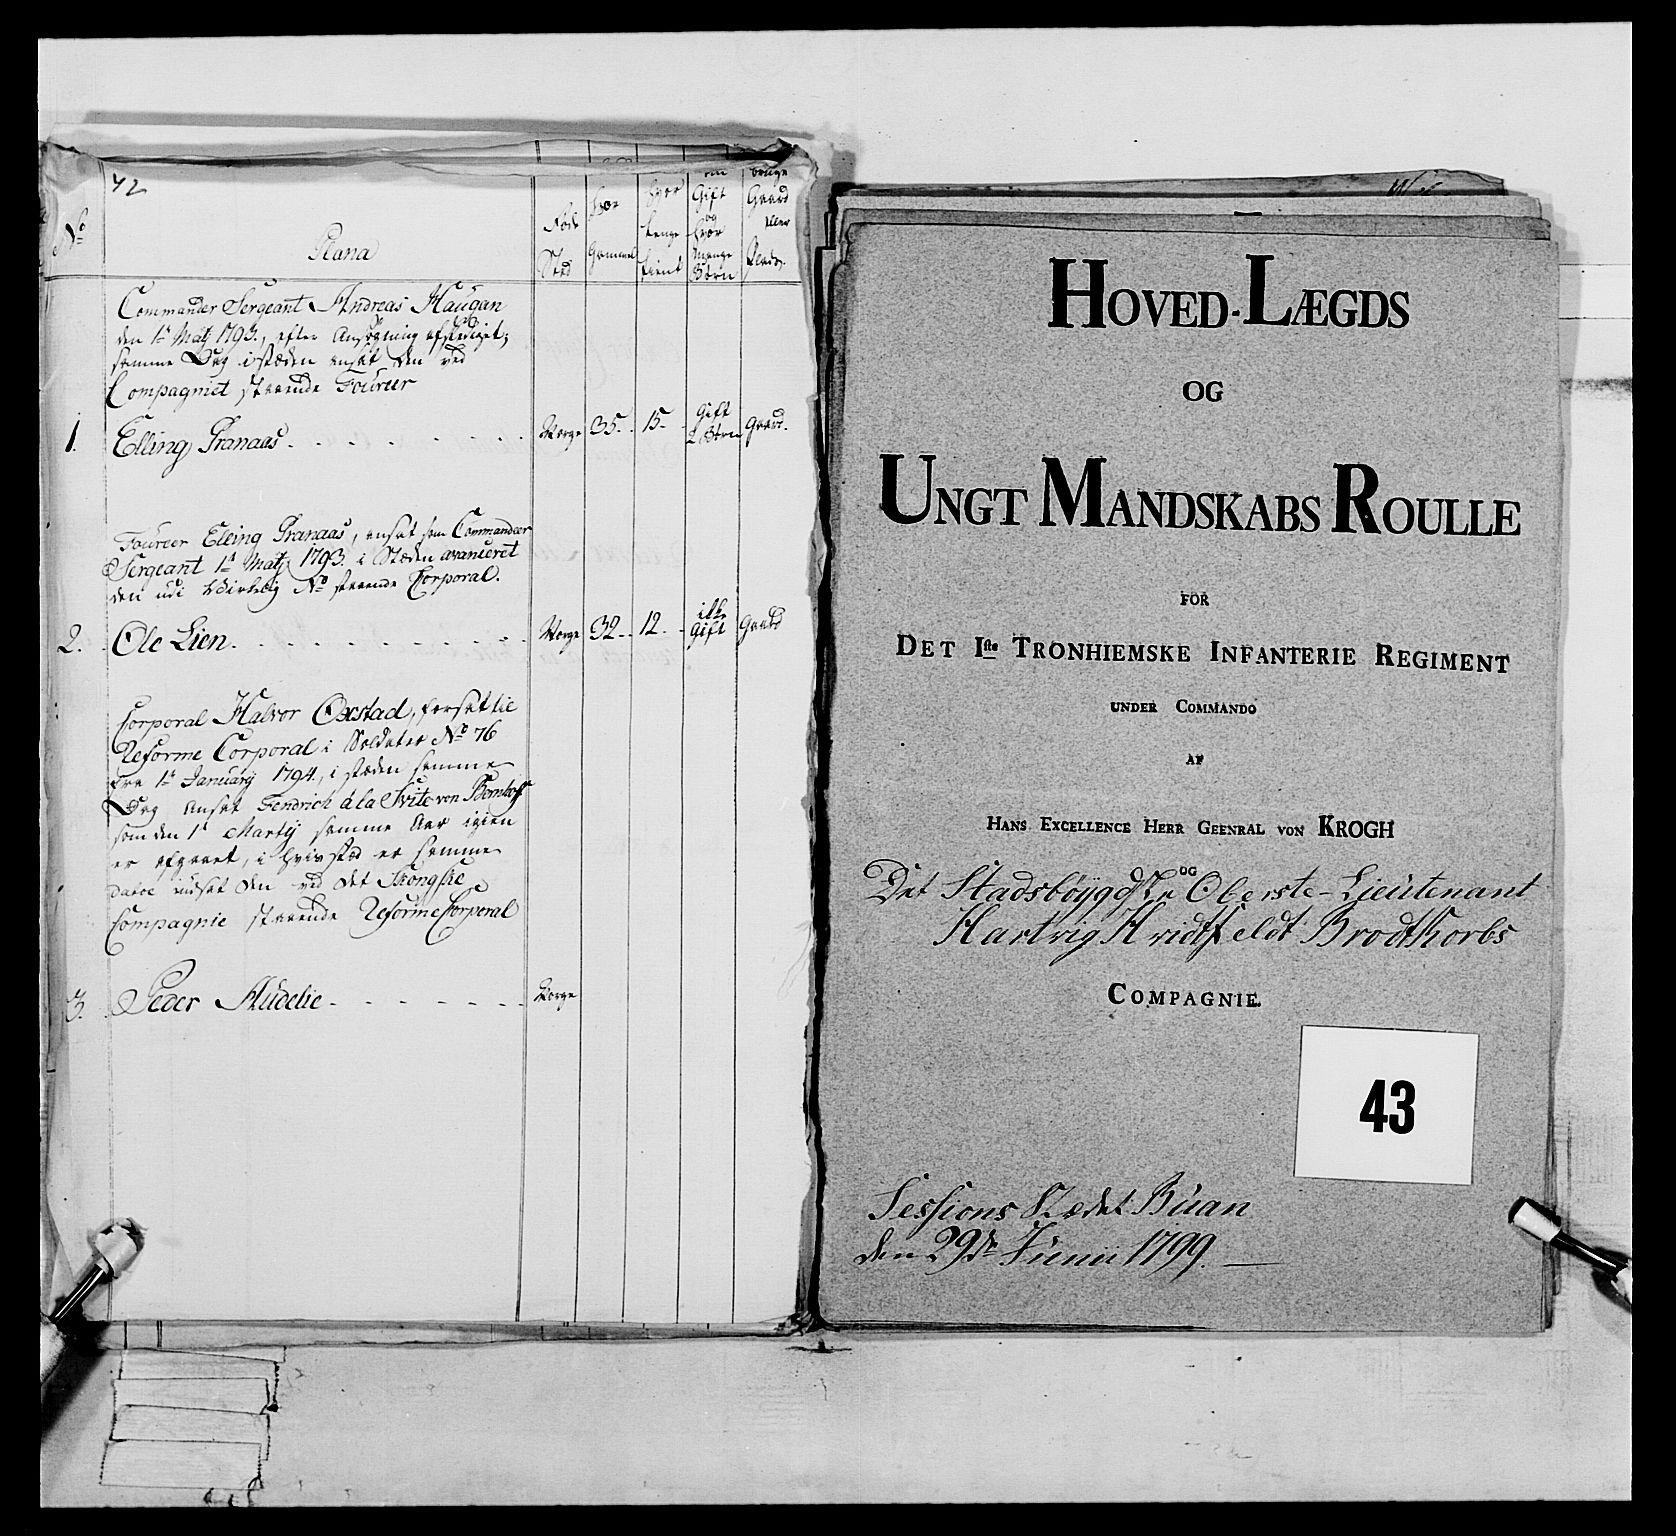 42
No
Plana
Føde
Sted
hvor
Gammel
hvor
lenge
tient
om
Gift
og
hvor
mange
Børn
bruge
Gaard
eller
Plads.
Commander Sergeant Andreas Haugan
den 1te Martj 1793., efter Ansøgning afskediget;
samme Dag i stæden ansat den ved
Compagniet staaende Foureer
1. Elling Granaas . . . . . . . Norge 35. 15. Gift 2 Børn Gaard.
Foureer Elling Granaas, ansat som Commandeer
Sergeant 1te Martj 1793. i Stæden avanceret
den udi Virkelig No staaende Corporal.
2. Ole Lien. . . . . . . . Norge 32. 12. ikke Gift Gaard
Corporal Halvor Oxstad, forsat til
Reforme Corporal i Soldater No 76
fra 1te Januarij 1794., i stæden samme
Dag ansat Fendrich á la Svite von
som den 1te Martij samme Aar igien
er afgaaet, i hvis stæd er samme
dato indsat den ved det
Compagnie staaende Reforme Corporal
3. Peder Audelie . . . . . . . Norge
HOVED-LÆGDS
OG
UNGT MANDSKABS ROULLE
FOR
DET Iste TRONHIEMSKE INFANTERIE REGIMENT
UNDER COMMANDO
AF
HANS EXCELLENCE HERR GEENRAL VON KROGH
OG
Det Stadsbøygdske Oberste-Lieutenant
Hartvig Hvidtfeldt Brodtkorbs
COMPAGNIE.
43
Sessions Stædet Buan
den 29de Junii 1799.